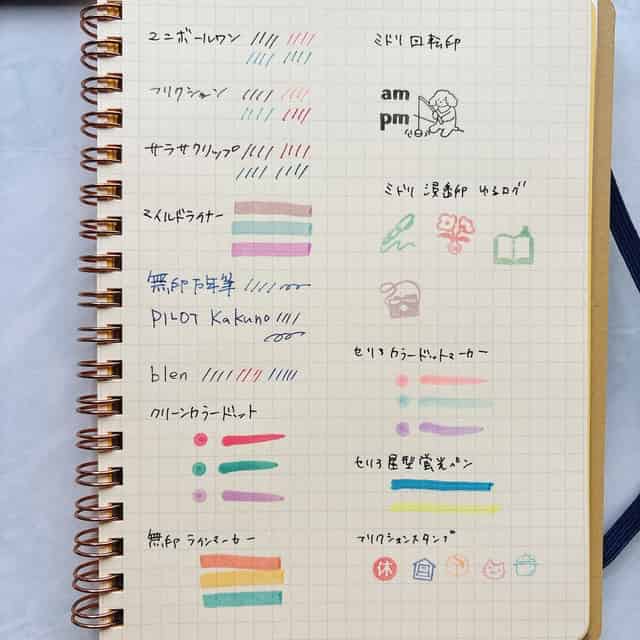 ユニボールワン
フリクション
サラサクリップ
マイルドライナー
無印万年筆
PILOT Kakuno
blen
クリーンカラードット
無印ラインマーカー
ミドリ回転印
am
pm
ミドリ 浸透印 ゆるログ
セリアカラードットマーカー
セリア扇型蛍光ペン
フリクションスタンプ
休